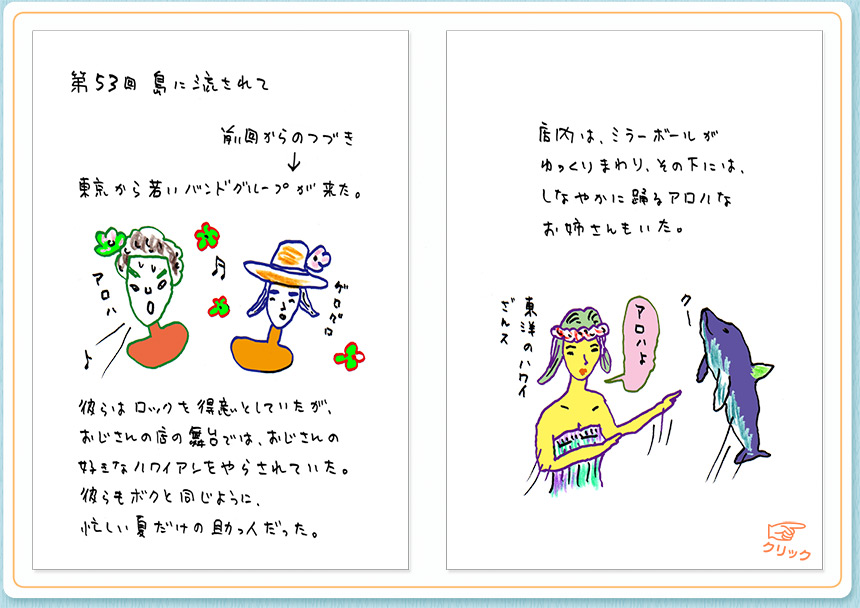 第53回 島に流されて
前回からのつづき
↓
東京から若いバンドグループが来た。
アロハ
♪
ゲログロ
彼らはロックを得意としていたが、
おじさんの店の舞台では、おじさんの
好きなハワイアンをやらされていた。
彼らもボクと同じように、
忙しい夏だけの助っ人だった。
店内は、ミラーボールが
ゆっくりまわり、その下には、
しなやかに踊るアロハな
お姉さんもいた。
東洋のハワイ
ざんス
アロハよ
クー
クリック